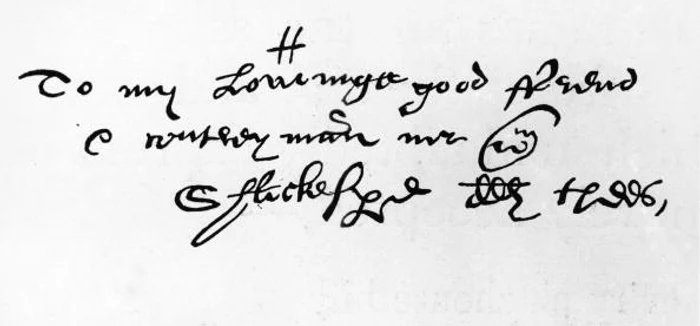 To my Loveinge good ffrend
& contreymann mr wm
Shackespere thees